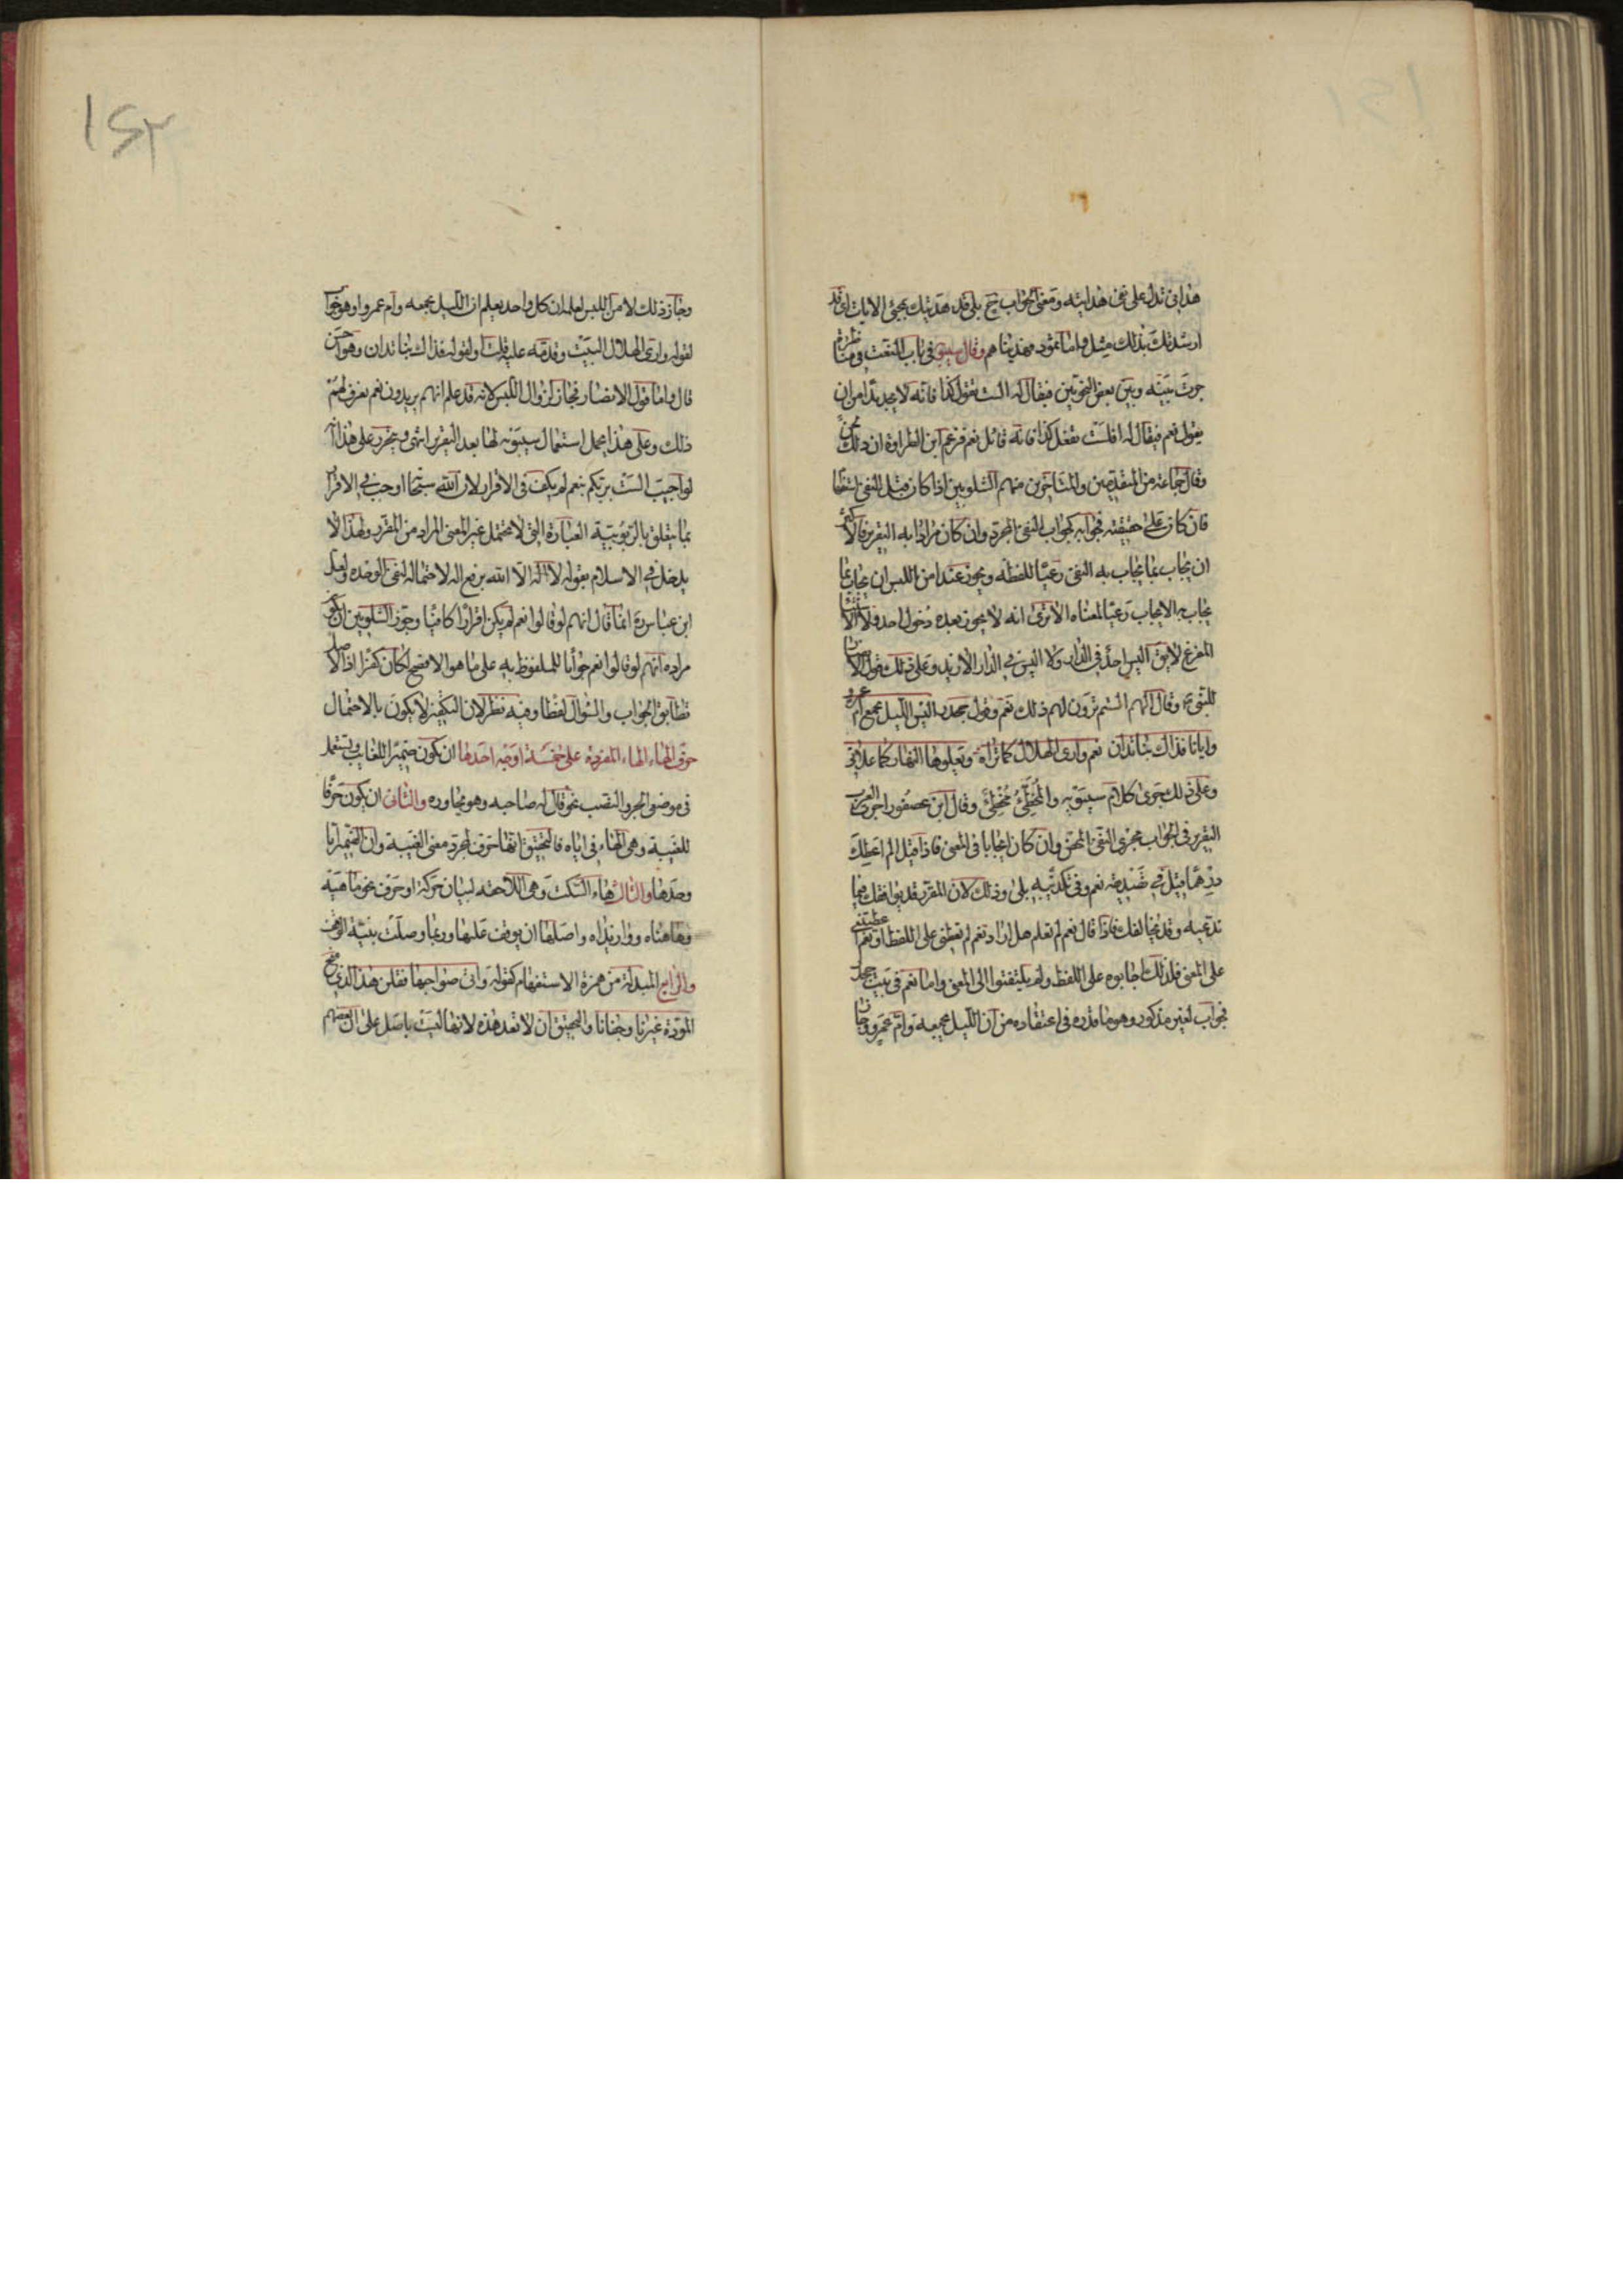 هداني تدل على نفي هدايته ومعنى الجواب ح بلى قد هديتك بمجئ الايات اى قد
ارسدتك بذلك مثل واما ثمود فهديناهم وقال سيبويه فى باب النعت فى مناظرة
جرت بينه وبين بعض النحويين فيقال له الست تقول كذا فانه لا يجد بدا من ان
يقول نعم فيقال له افلست تفعل كذا فانه قائل نعم فزعم ابن الطراوة ان ذلك لحن
وقال جماعة من المتقدمين والمتاخرين منهم الشلوبين اذا كان قبل النفى استفهام
فان كان على حقيقته فجوابه كجواب النفى المجرد وان كان مرادا به التقرير فالاكثر
ان يجاب بما يجاب به النفى رعيا للفظه ويجوز عند امن اللبس ان يجاب بما
يجاب به الايجاب رعيا لمعناه الا ترى انه لا يجوز بعده دخول احد ولا الاستثناء
المفرغ لا يق اليس احد فى الدار ولا اليس فى الدار الا زيد وعلى ذلك قول الانصار
للنبى وقال لهم الستم ترون لهم ذلك نعم وقول جحدر اليس الليل يجمع ام عمرو
وايانا فذاك بنا تدان نعم وارى الهلال كما تراه ويعلوها النهار كما علانى
وعلى ذلك جرى كلام سيبويه والمخطئ مخطئ وقال ابن عصفور اجرى العرب
التقرير فى الجواب مجرى النفى المحض وان كان ايجابا فى المعنى فاذا قيل الم اعطك
درهما قيل فى تصديقه نعم وفى تكذيبه بلى وذلك لان المقرر قد يوافقك فيما
تدعيه وقد يخالفك فاذا قال نعم لم تعلم هل اراد نعم لم تعطنى على اللفظ او نعم اعطيتنى
على المعنى فلذلك اجابوه على اللفظ ولم يلتفتوا الى المعنى واما نعم فى بيت جحدر
فجواب لغير مذكور وهو ما قدره فى اعتقاده من ان الليل يجمعه وام عمرو وجاز
وجاز ذلك لامن اللبس لعلمه ان كل واحد يعلم ان الليل يجمعه وام عمرو او هو جواب
لقوله وارى الهلال البيت وقدمه عليه قلت او لقوله فذاك بنا تدان وهو احسن
قال واما قول الانصار فجاز لزوال اللبس لانه قد علم انهم يريدون نعم نعرف لهم
ذلك وعلى هذا يحمل استعمال سيبويه لها بعد التقرير انتهى ويتحرر على هذا انه
لو اجيب الست بربكم بنعم لم يكف فى الاقرار لان الله سبحانه اوجب فى الاقرار
بما يتعلق بالربوبية العبارة التى لا تحتمل غير المعنى المراد من المقرر ولهذا لا
يدخل فى الاسلام بقوله لا اله الا الله برفع اله لاحتماله لنفى الوحدة ولعل
ابن عباس رض انما قال انهم لو قالوا نعم لم يكن اقرارا كافيا وجوز الشلوبين ان يكون
مراده انهم لو قالوا نعم جوابا للملفوظ به على ما هو الافصح لكان كفرا اذ الاصل
تطابق الجواب والسؤال لفظا وفيه نظر لان التكفير لا يكون بالاحتمال
حرف الهاء الهاء المفردة على خمسة اوجه احدها ان يكون ضميرا للغايب ويستعمل
فى موضع الجر والنصب نحو قال له صاحبه وهو يحاوره والثانى ان يكون حرفا
للغيبة وهى الهاء فى اياه فالتحقيق انها حرف لمجرد معنى الغيبة وان الضمير ايا
وحدها والثالث هاء السكت وهى اللاحقة لبيان حركة او حرف نحو ما هيه
وها هناه ووا زيداه واصلها ان يوقف عليها وربما وصلت بنية الوقف
والرابع المبدلة من همزة الاستفهام كقوله واتى صواحبها فقلن هذا الذي منح
المودة غيرنا وجفانا والتحقيق ان لا تعد هذه لانها ليست باصل على ان بعضهم